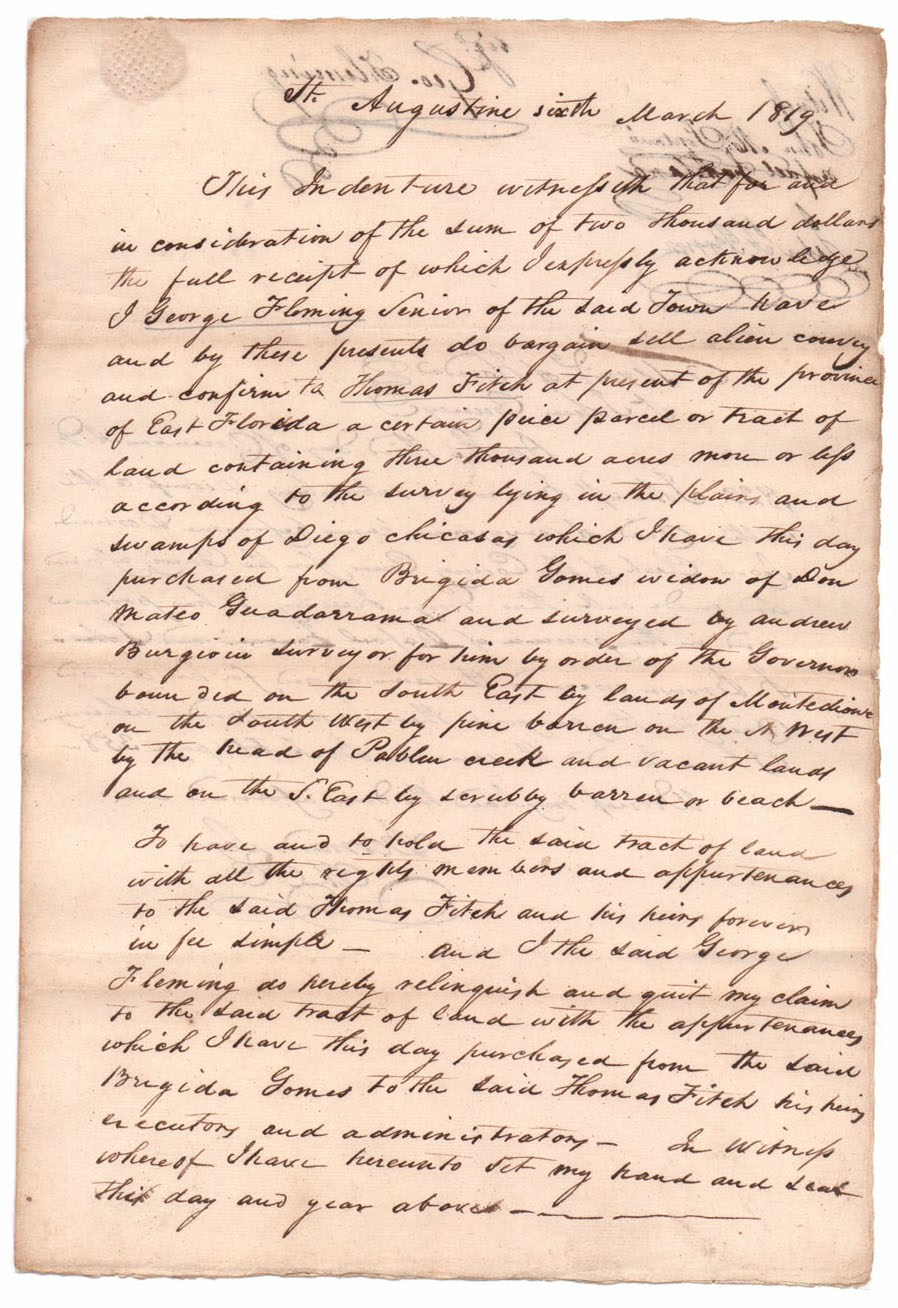 St. Augustine sixth March 1819
This Indenture witnesseth that for and
in consideration of the sum of two thousand dollars
the full receipt of which I expressly acknowledge
I George Fleming Senior of the said Town have
and by these presents do bargain sell alien convey
and confirm to Thomas Fitch at present of the province
of East Florida a certain peice parcel or tract of
land containing three thousand acres more or less
according to the survey lying in the plains and
swamps of Diego chicasas which I have this day
purchased from Brigida Gomes widow of Don
Mateo Guadarrama and surveyed by andrew
Burgivin surveyor for him by order of the Governor
bounded on the South East by lands of Montedioca
on the South West by pine barren on the N West
by the head of Pablen creek and vacant lands
and on the S. East by scrubby barren or beach —
To have and to hold the said tract of land
with all the rights members and appurtenances
to the said Thomas Fitch and his heirs forever
in fee simple — And I the said George
Fleming do hereby relinquish and quit my claim
to the said tract of land with the appurtenances
which I have this day purchased from the said
Brigida Gomes to the said Thomas Fitch his heirs
executors and administrators — In Witness
whereof I have hereunto set my hand and seal
this day and year above — —
Geo. Fleming